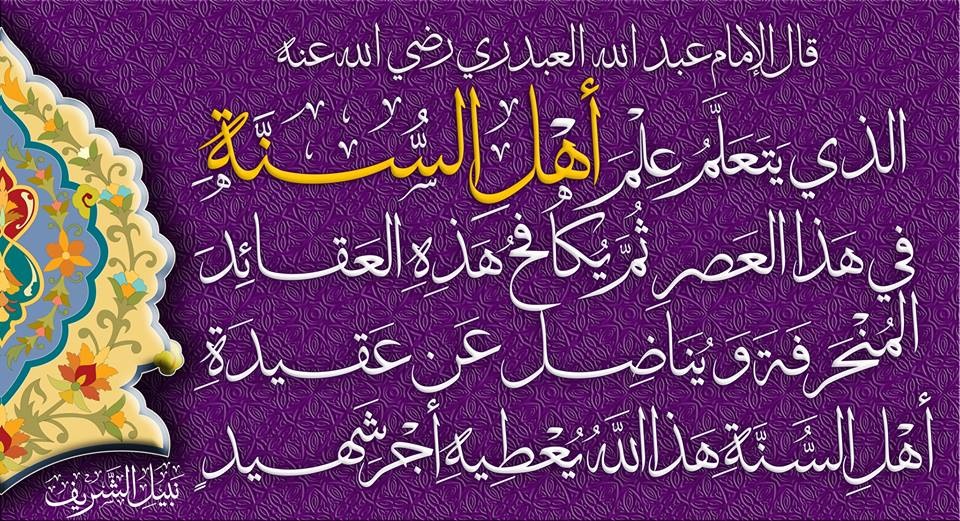 قال الإمام عبد الله العبدري رضي الله عنه
الذي يَتعَلَّمُ عِلمَ أهْلِ السُّنَّةِ
في هَذا العَصرِ ثُمَّ يُكافحُ هَذِهِ العَقَائِدَ
المُنْحَرفةَ وَيُنَاضِل عَن عَقيدَةِ
أهْلِ السُّنَّة هَذا اللَّهُ يُعْطيه أجْرَ شَهيدٍ
نبيل الشَّريف